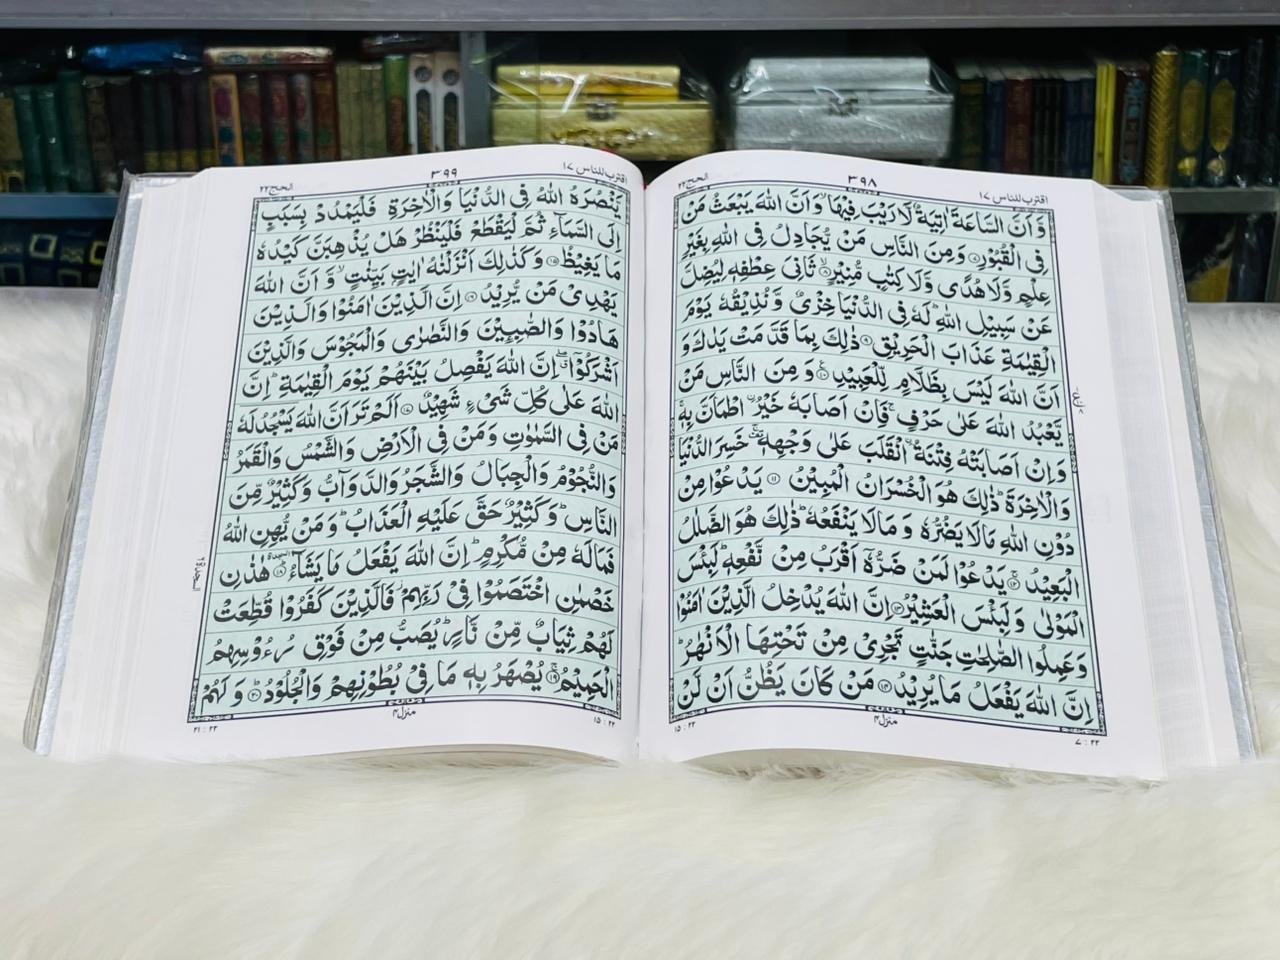 اقترب للناس ١٧
٣٩٨
الحج ٢٢
وَّ اَنَّ السَّاعَةَ اٰتِيَةٌ لَّا رَيْبَ فِيْهَا ۙ وَ اَنَّ اللّٰهَ يَبْعَثُ مَنْ
فِى الْقُبُوْرِ ۝٧ وَمِنَ النَّاسِ مَنْ يُّجَادِلُ فِى اللّٰهِ بِغَيْرِ
عِلْمٍ وَّلَا هُدًى وَّلَا كِتٰبٍ مُّنِيْرٍ ۝٨ۙ ثَانِىَ عِطْفِهٖ لِيُضِلَّ
عَنْ سَبِيْلِ اللّٰهِ ؕ لَهٗ فِى الدُّنْيَا خِزْىٌ وَّ نُذِيْقُهٗ يَوْمَ
الْقِيٰمَةِ عَذَابَ الْحَرِيْقِ ۝٩ ذٰلِكَ بِمَا قَدَّمَتْ يَدٰكَ وَ
اَنَّ اللّٰهَ لَيْسَ بِظَلَّامٍ لِّلْعَبِيْدِ ۝١٠ۧ وَ مِنَ النَّاسِ مَنْ
يَّعْبُدُ اللّٰهَ عَلٰى حَرْفٍ ۚ فَاِنْ اَصَابَهٗ خَيْرُ اۨطْمَاَنَّ بِهٖ ۚ
وَاِنْ اَصَابَتْهُ فِتْنَةُ اۨنْقَلَبَ عَلٰى وَجْهِهٖ ۚ خَسِرَ الدُّنْيَا
وَالْاٰخِرَةَ ؕ ذٰلِكَ هُوَ الْخُسْرَانُ الْمُبِيْنُ ۝١١ يَدْعُوْا مِنْ
دُوْنِ اللّٰهِ مَا لَا يَضُرُّهٗ وَ مَا لَا يَنْفَعُهٗ ؕ ذٰلِكَ هُوَ الضَّلٰلُ
الْبَعِيْدُ ۝١٢ۚ يَدْعُوْا لَمَنْ ضَرُّهٗۤ اَقْرَبُ مِنْ نَّفْعِهٖ ؕ لَبِئْسَ
الْمَوْلٰى وَ لَبِئْسَ الْعَشِيْرُ ۝١٣ اِنَّ اللّٰهَ يُدْخِلُ الَّذِيْنَ اٰمَنُوْا
وَعَمِلُوا الصّٰلِحٰتِ جَنّٰتٍ تَجْرِىْ مِنْ تَحْتِهَا الْاَنْهٰرُ ؕ
اِنَّ اللّٰهَ يَفْعَلُ مَا يُرِيْدُ ۝١٤ مَنْ كَانَ يَظُنُّ اَنْ لَّنْ
٧ : ٢٢
منزل ٤
١٥ : ٢٢
اقترب للناس ١٧
٣٩٩
الحج ٢٢
يَّنْصُرَهُ اللّٰهُ فِى الدُّنْيَا وَالْاٰخِرَةِ فَلْيَمْدُدْ بِسَبَبٍ
اِلَى السَّمَآءِ ثُمَّ لْيَقْطَعْ فَلْيَنْظُرْ هَلْ يُذْهِبَنَّ كَيْدُهٗ
مَا يَغِيْظُ ۝١٥ وَكَذٰلِكَ اَنْزَلْنٰهُ اٰيٰتٍۭ بَيِّنٰتٍ ۙ وَّ اَنَّ اللّٰهَ
يَهْدِىْ مَنْ يُّرِيْدُ ۝١٦ اِنَّ الَّذِيْنَ اٰمَنُوْا وَالَّذِيْنَ
هَادُوْا وَالصّٰبِـِٕيْنَ وَالنَّصٰرٰى وَالْمَجُوْسَ وَالَّذِيْنَ
اَشْرَكُوْۤا ۖ اِنَّ اللّٰهَ يَفْصِلُ بَيْنَهُمْ يَوْمَ الْقِيٰمَةِ ؕ اِنَّ
اللّٰهَ عَلٰى كُلِّ شَىْءٍ شَهِيْدٌ ۝١٧ اَلَمْ تَرَ اَنَّ اللّٰهَ يَسْجُدُ لَهٗ
مَنْ فِى السَّمٰوٰتِ وَمَنْ فِى الْاَرْضِ وَالشَّمْسُ وَالْقَمَرُ
وَالنُّجُوْمُ وَالْجِبَالُ وَالشَّجَرُ وَالدَّوَآبُّ وَكَثِيْرٌ مِّنَ
النَّاسِ ؕ وَكَثِيْرٌ حَقَّ عَلَيْهِ الْعَذَابُ ؕ وَمَنْ يُّهِنِ اللّٰهُ
فَمَا لَهٗ مِنْ مُّكْرِمٍ ؕ اِنَّ اللّٰهَ يَفْعَلُ مَا يَشَآءُ ؕ ۝١٨ هٰذٰنِ
خَصْمٰنِ اخْتَصَمُوْا فِىْ رَبِّهِمْ ۫ فَالَّذِيْنَ كَفَرُوْا قُطِّعَتْ
لَهُمْ ثِيَابٌ مِّنْ نَّارٍ ؕ يُصَبُّ مِنْ فَوْقِ رُءُوْسِهِمُ
الْحَمِيْمُ ۝١٩ۚ يُصْهَرُ بِهٖ مَا فِىْ بُطُوْنِهِمْ وَالْجُلُوْدُ ؕ ۝٢٠ وَ لَهُمْ
١٥ : ٢٢
منزل ٤
٢١ : ٢٢